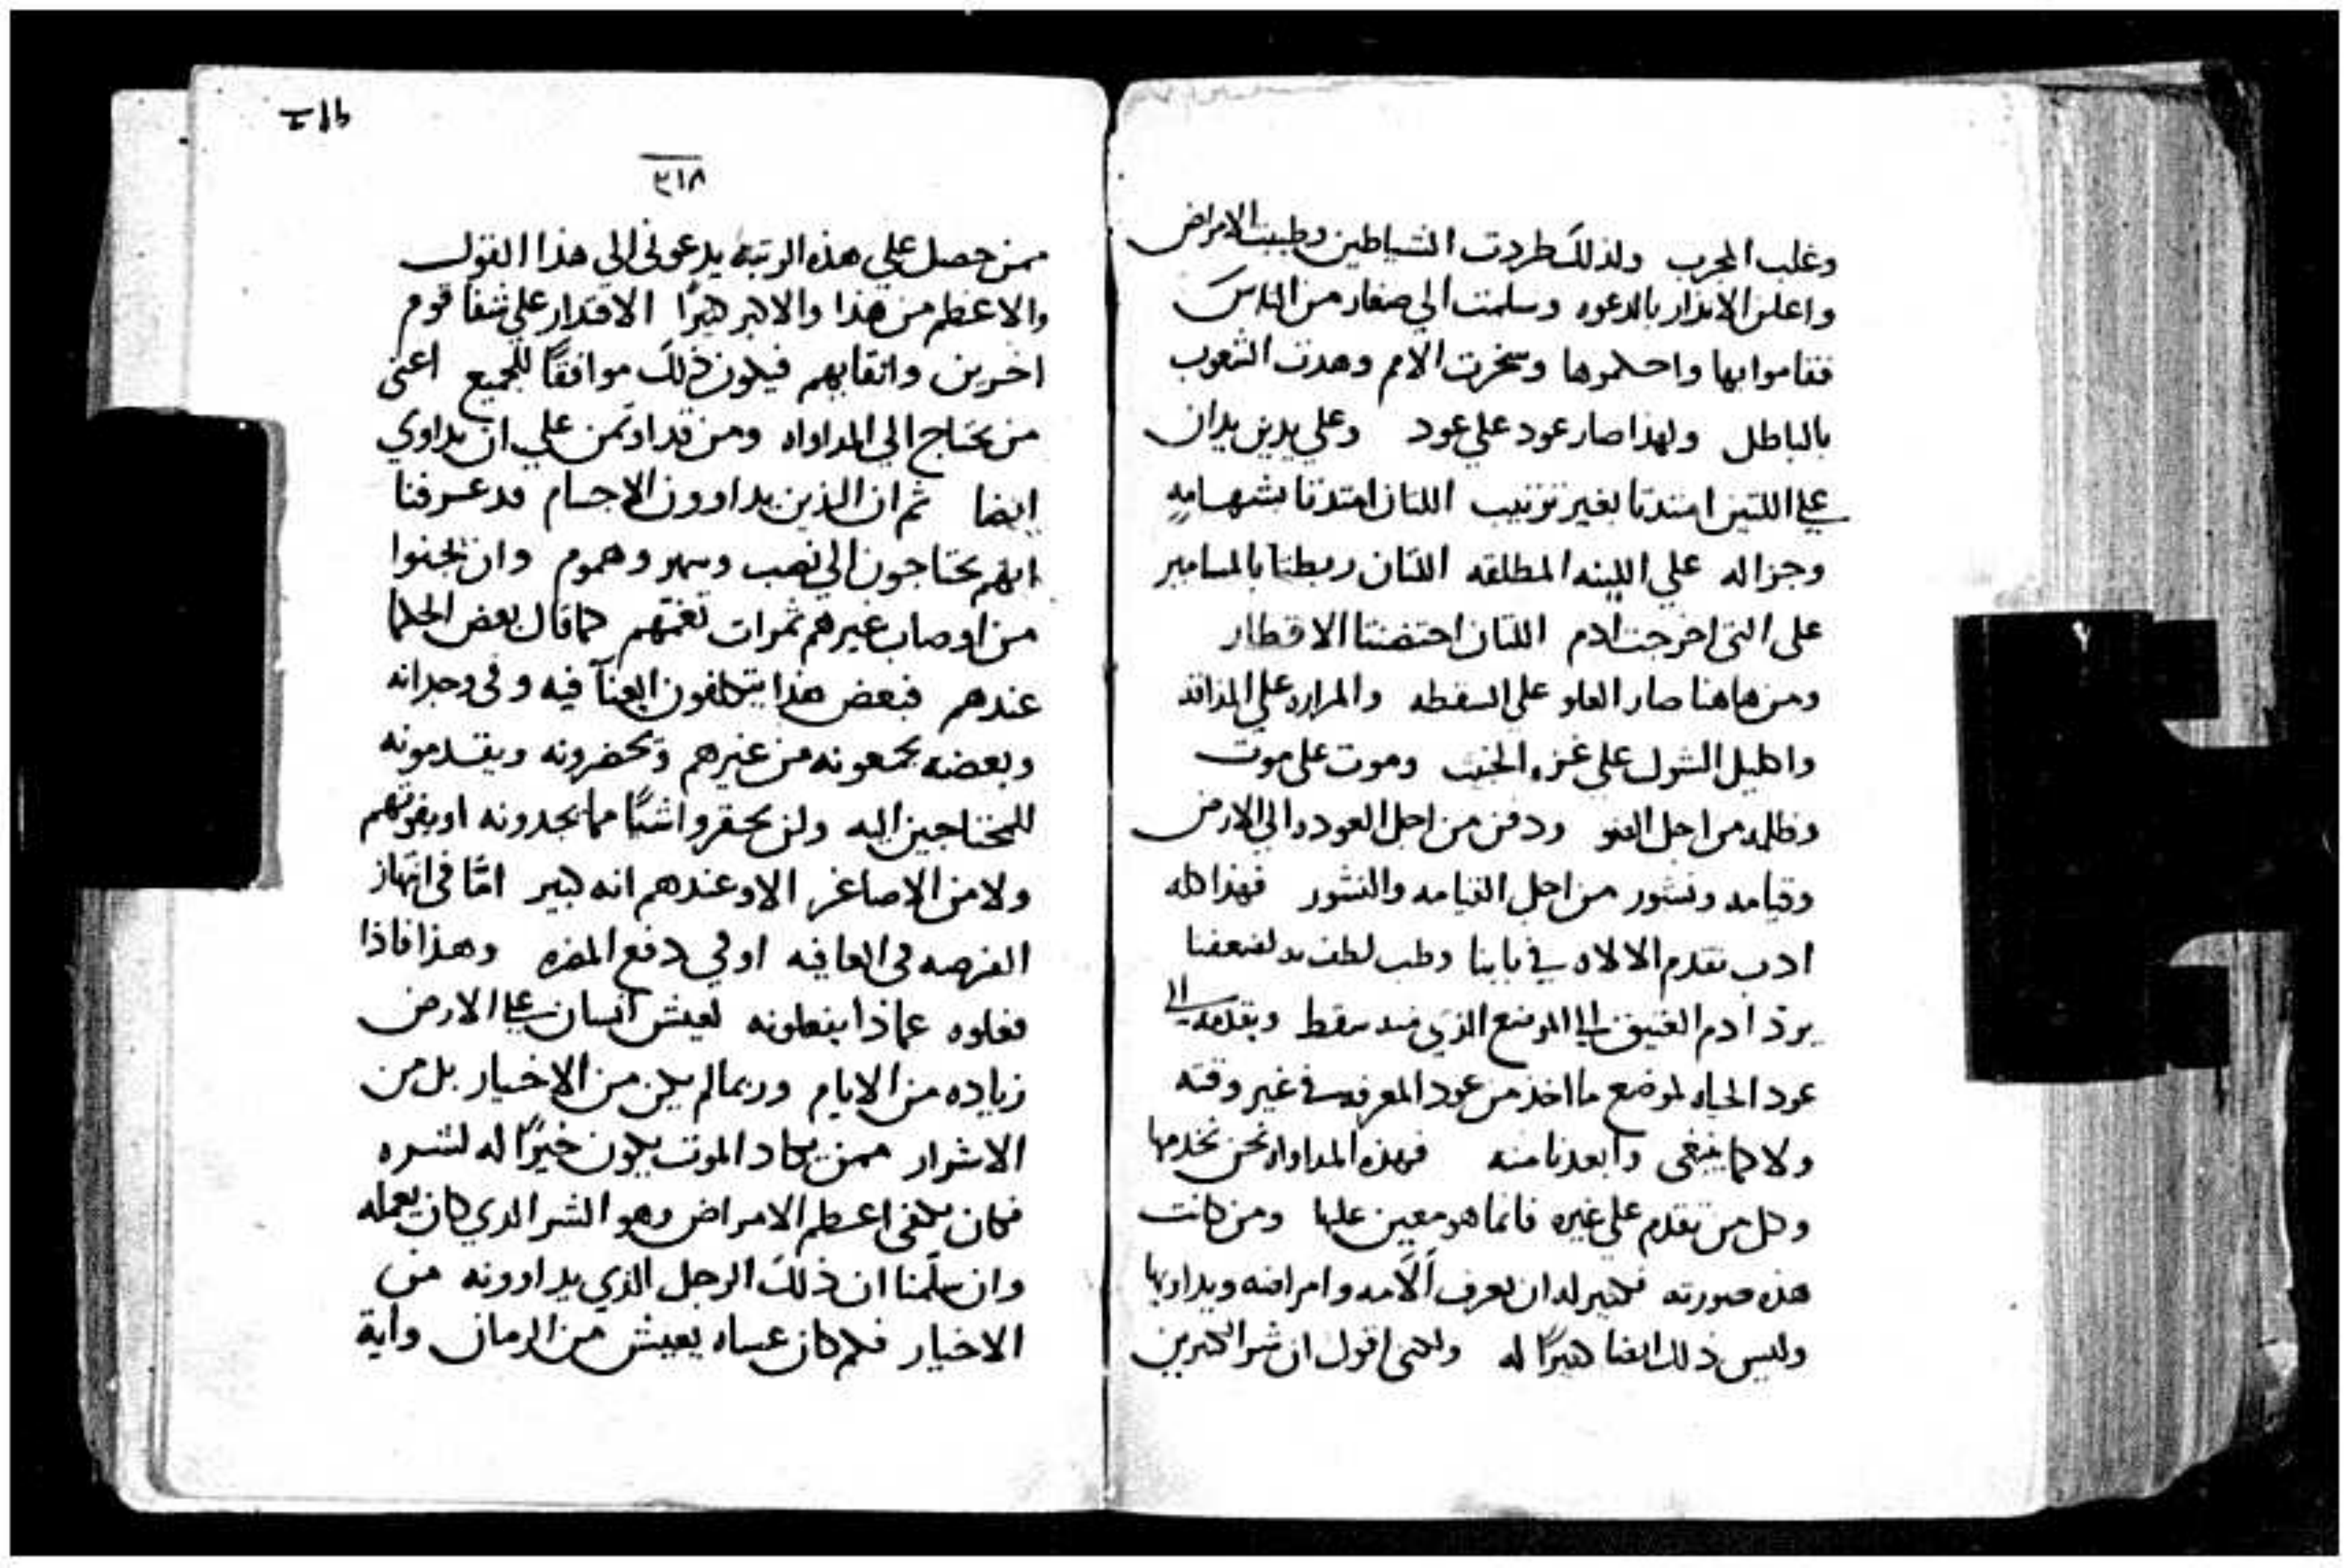 وغلب المجرب ولذلك طردت الشياطين وطببت الامراض
واعلن الانذار بالدعوه وسلمت الي صغار من الناس
فقاموا بها واحكموها وسخرت الامم وهدت الشعوب
بالباطل ولهذا صار عود علي عود وعلي يدين يدان
علي اللتين امتدتا بغير ترتيب اللتان امتدتا بشهامه
وجزاله علي اللينه المطلقه اللتان ربطتا بالمسامير
على التى اخرجت ادم اللتان احتضنتا الاقطار
ومن هاهنا صار العلو على السقطه والمراره علي المذاقه
واكليل الشوك علي عزه الخبيث وموت على موت
وظلمه من اجل الضو ودفن من اجل العوده الي الارض
وقيامه ونشور من اجل القيامه والنشور فهذا كله
ادب تقدم الالاه في بابنا وطب لطف به لضعفنا
يرد ادم العتيق الي الموضع الذي منه سقط ويقدمه الي
عود الحياه لموضع ما اخذ من عود المعرفه في غير وقته
ولا كما ينبغى وابعدنا منه فهذه المداواه نحن نخدمها
وكل من تقدم علي غيره فانما هو معين عليها ومن كانت
هذه صورته فكبير له ان يعرف آلامه وامراضه ويداويها
وليس ذلك ايضا كبيرًا له ولكنى اقول ان شر الكثيرين
٣١٨
ممن حصل علي هذه الرتبه يدعونى الي هذا القول
والاعظم من هذا والاكبر كثيرًا الاقدار علي شفا قوم
اخرين وانقايهم فيكون ذلك موافقًا للجميع اعنى
من يحتاج الي المداواه ومن قد اوتمن علي ان يداوي
ايضا ثم ان الذين يداوون الاجسام قد عرفنا
انهم يحتاجون الي نصب وسهر وهموم وان يجنوا
من اوصاب غيرهم ثمرات تغمهم كما قال بعض الحكما
عندهم فبعض هذا يتكلفون العنآ فيه وفى وجدانه
وبعضه يجمعونه من غيرهم ويحضرونه ويقدمونه
للمحتاجين اليه ولن يحقروا شيًا مما يجدونه او يفوتهم
ولا من الاصاغر الا وعندهم انه كبير امّا فى انتهاز
الفرصه فى العافيه او في دفع المضره وهذا فاذا
فعلوه عماذا يفعلونه لعيش انسان علي الارض
زياده من الايام وربما لم يكن من الاخيار بل من
الاشرار ممن يكاد الموت يكون خيرًا له لشره
فكان يكفى اعظم الامراض وهو الشر الذي كان يعمله
وان سلّمنا ان ذلك الرجل الذي يداوونه من
الاخيار فكم كان عساه يعيش من الزمان وأية